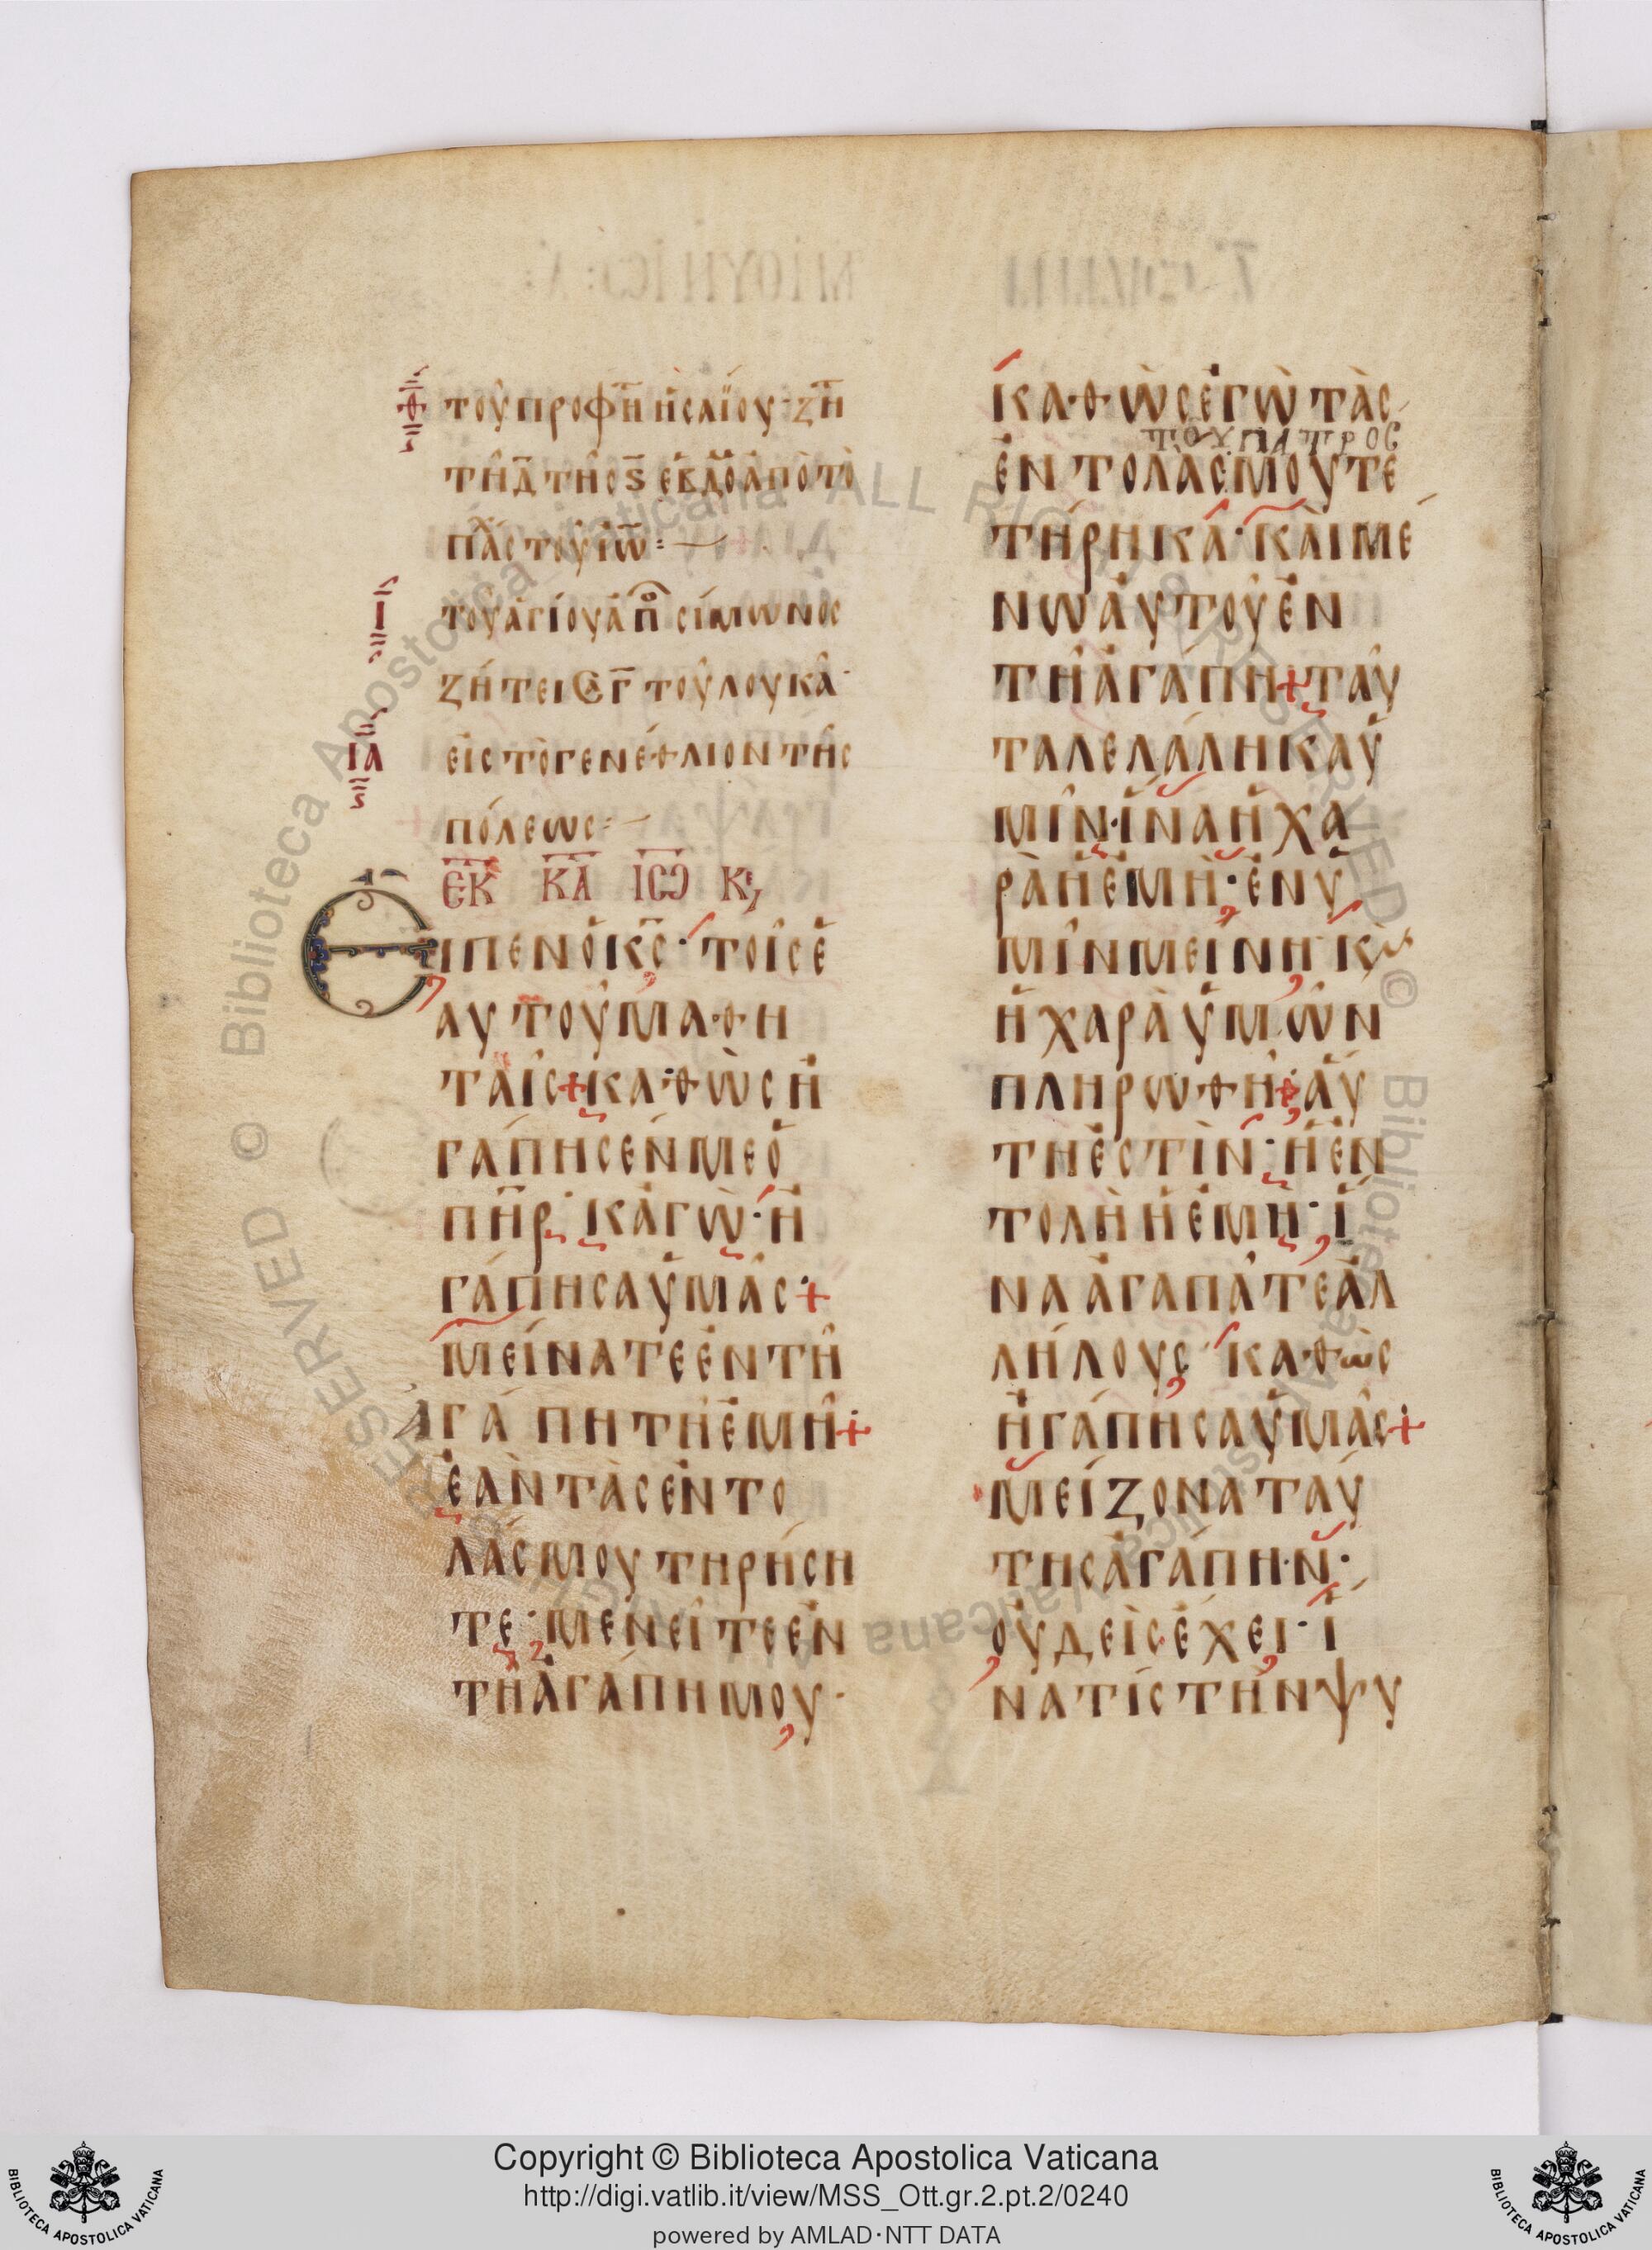 Θ τοῦ προφη ἡσαΐου· ζη
τῆ Δ τῆς ϛ ἑβδο ἀπὸ τὸ
πάσ τοῦ ἰω
Ι τοῦ ἁγίου ἀπο σίμωνος
ζήτει Γ τοῦ λουκᾶ·
ΙΑ εἰς τὸ γενέθλιον τῆς
πόλεως
ΕΚ ΚΑ ΙΩ Κε
Εἶπεν ὁ κς· τοῖς ἑ
αυτοῦ μαθη
ταῖς + καθὼς ἠ
γάπησέν με ὁ
πηρ· κἀγὼ· ἠ
γάπησα ὑμᾶς· +
μείνατε ἐν τῆ
ἀγάπη τῆ ἐμῆ· +
ἐὰν τὰς ἐντο
λάς μου τηρήση
τε· μενεῖτε ἐν
τῆ ἀγάπη μου·
καθὼς ἐγὼ τὰς
τοῦ πατρος
ἐντολὰς μου τε
τήρηκα· καὶ μέ
νω αὐτοῦ ἐν
τῆ ἀγάπη + ταῦ
τα λελάληκα ὑ
μῖν· ἵνα ἡ χα
ρὰ ἡ ἐμὴ· ἐν ὑ
μῖν μείνη· κὶ
ἡ χαρὰ ὑμῶν
πληρωθῆ· + αὕ
τη ἐστὶν· ἡ ἐν
τολὴ ἡ ἐμὴ· ἵ
να ἀγαπᾶτε ἀλ
λήλους· καθὼς
ἠγάπησα ὑμᾶς· +
μείζονα ταύ
της ἀγάπην·
οὐδεὶς ἔχει· ἵ
να τίς τὴν ψυ
Copyright © Biblioteca Apostolica Vaticana
http://digi.vatlib.it/view/MSS_Ott.gr.2.pt.2/0240
powered by AMLAD·NTT DATA
BIBLIOTECA APOSTOLICA VATICANA
BIBLIOTECA APOSTOLICA VATICANA